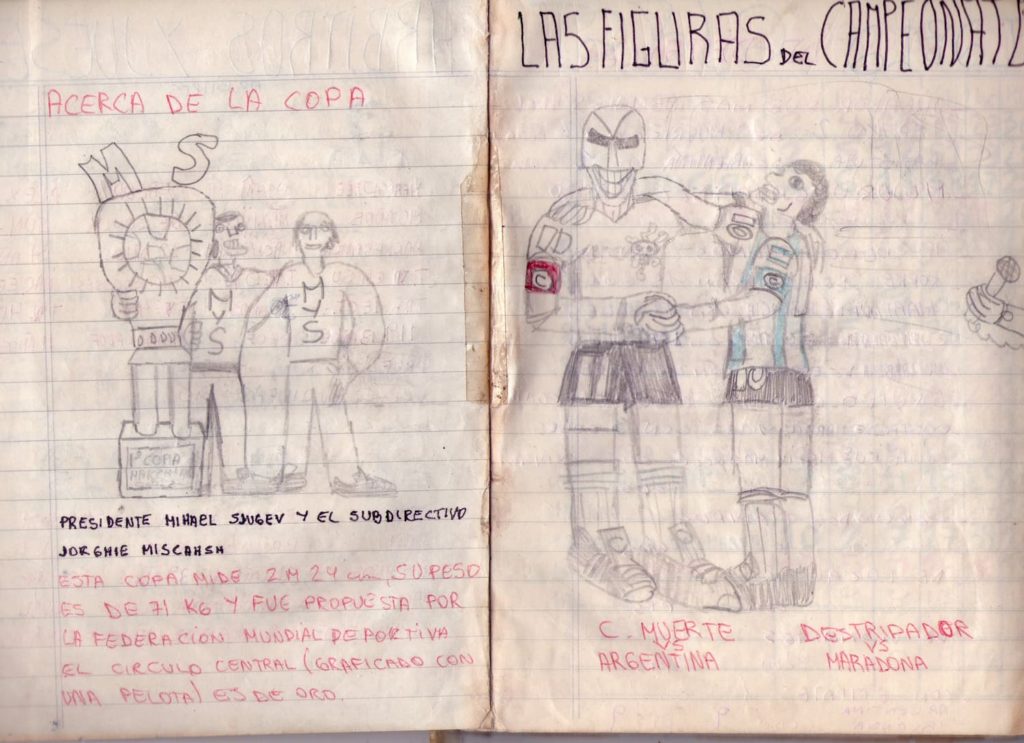 ACERCA DE LA COPA
M S
M S
M S
1ª COPA
PRESIDENTE MIHAEL SJUGEV Y EL SUBDIRECTIVO
JORGHIE MISCAHSH
ESTA COPA MIDE 2 M 24 cm, SU PESO
ES DE 71 KG Y FUE PROPUESTA POR
LA FEDERACION MUNDIAL DEPORTIVA
EL CIRCULO CENTRAL (GRAFICADO CON
UNA PELOTA) ES DE ORO.
LAS FIGURAS DEL CAMPEONATO
C
C
C. MUERTE DESTRIPADOR
VS VS
ARGENTINA MARADONA